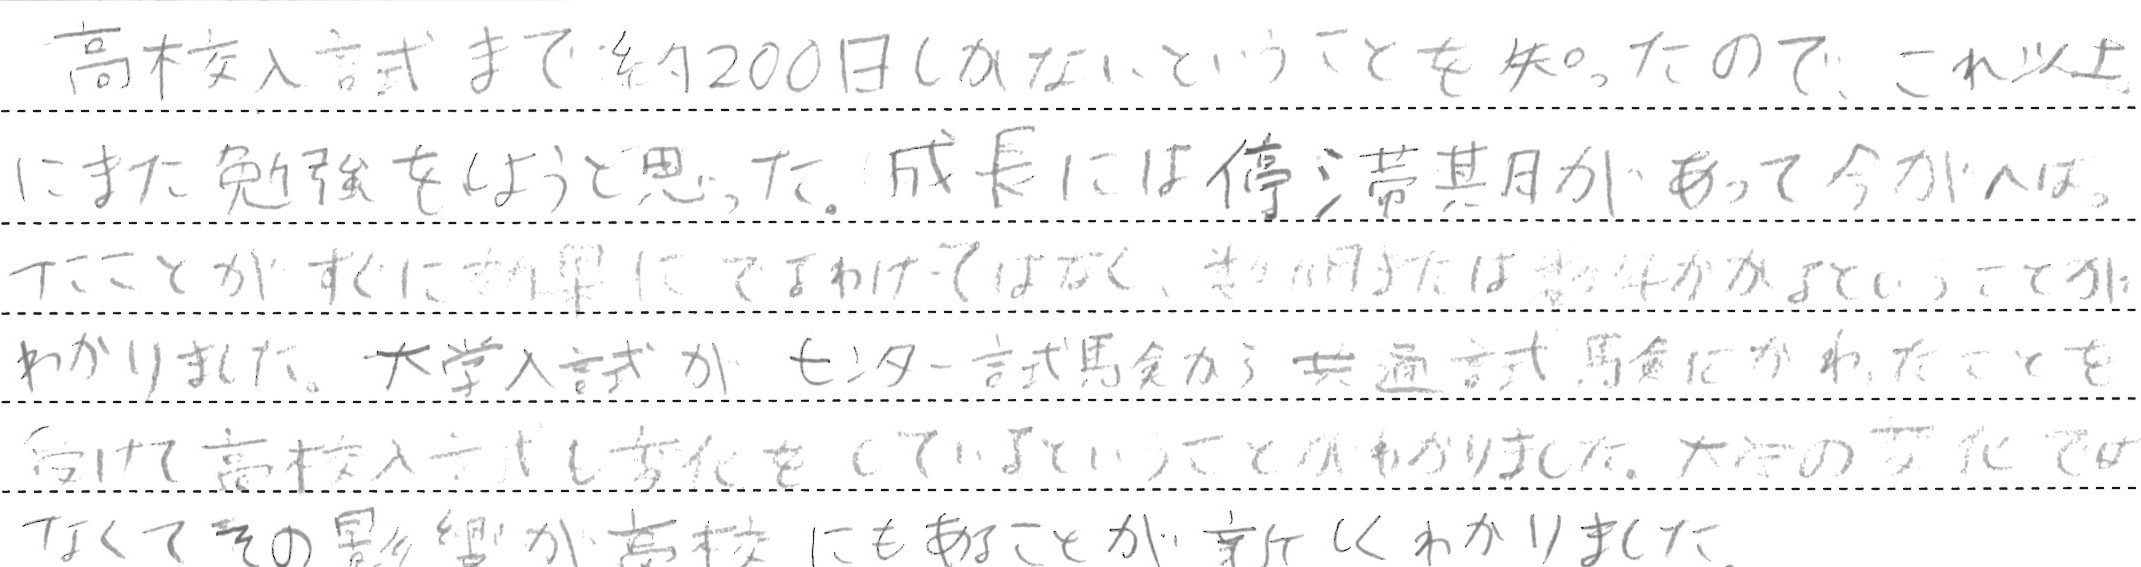 高校入試まで約200日しかないということを知ったので、これ以上
にまた勉強をしようと思った。成長には停滞期があって今がんばっ
たことがすぐに効果にでるわけではなく、数ヶ月または数年かかるということが
わかりました。大学入試がセンター試験から共通試験にかわったことを
受けて高校入試も変化をしているということがわかりました。大学の変化では
なくてその影響が高校にもあることが新しくわかりました。